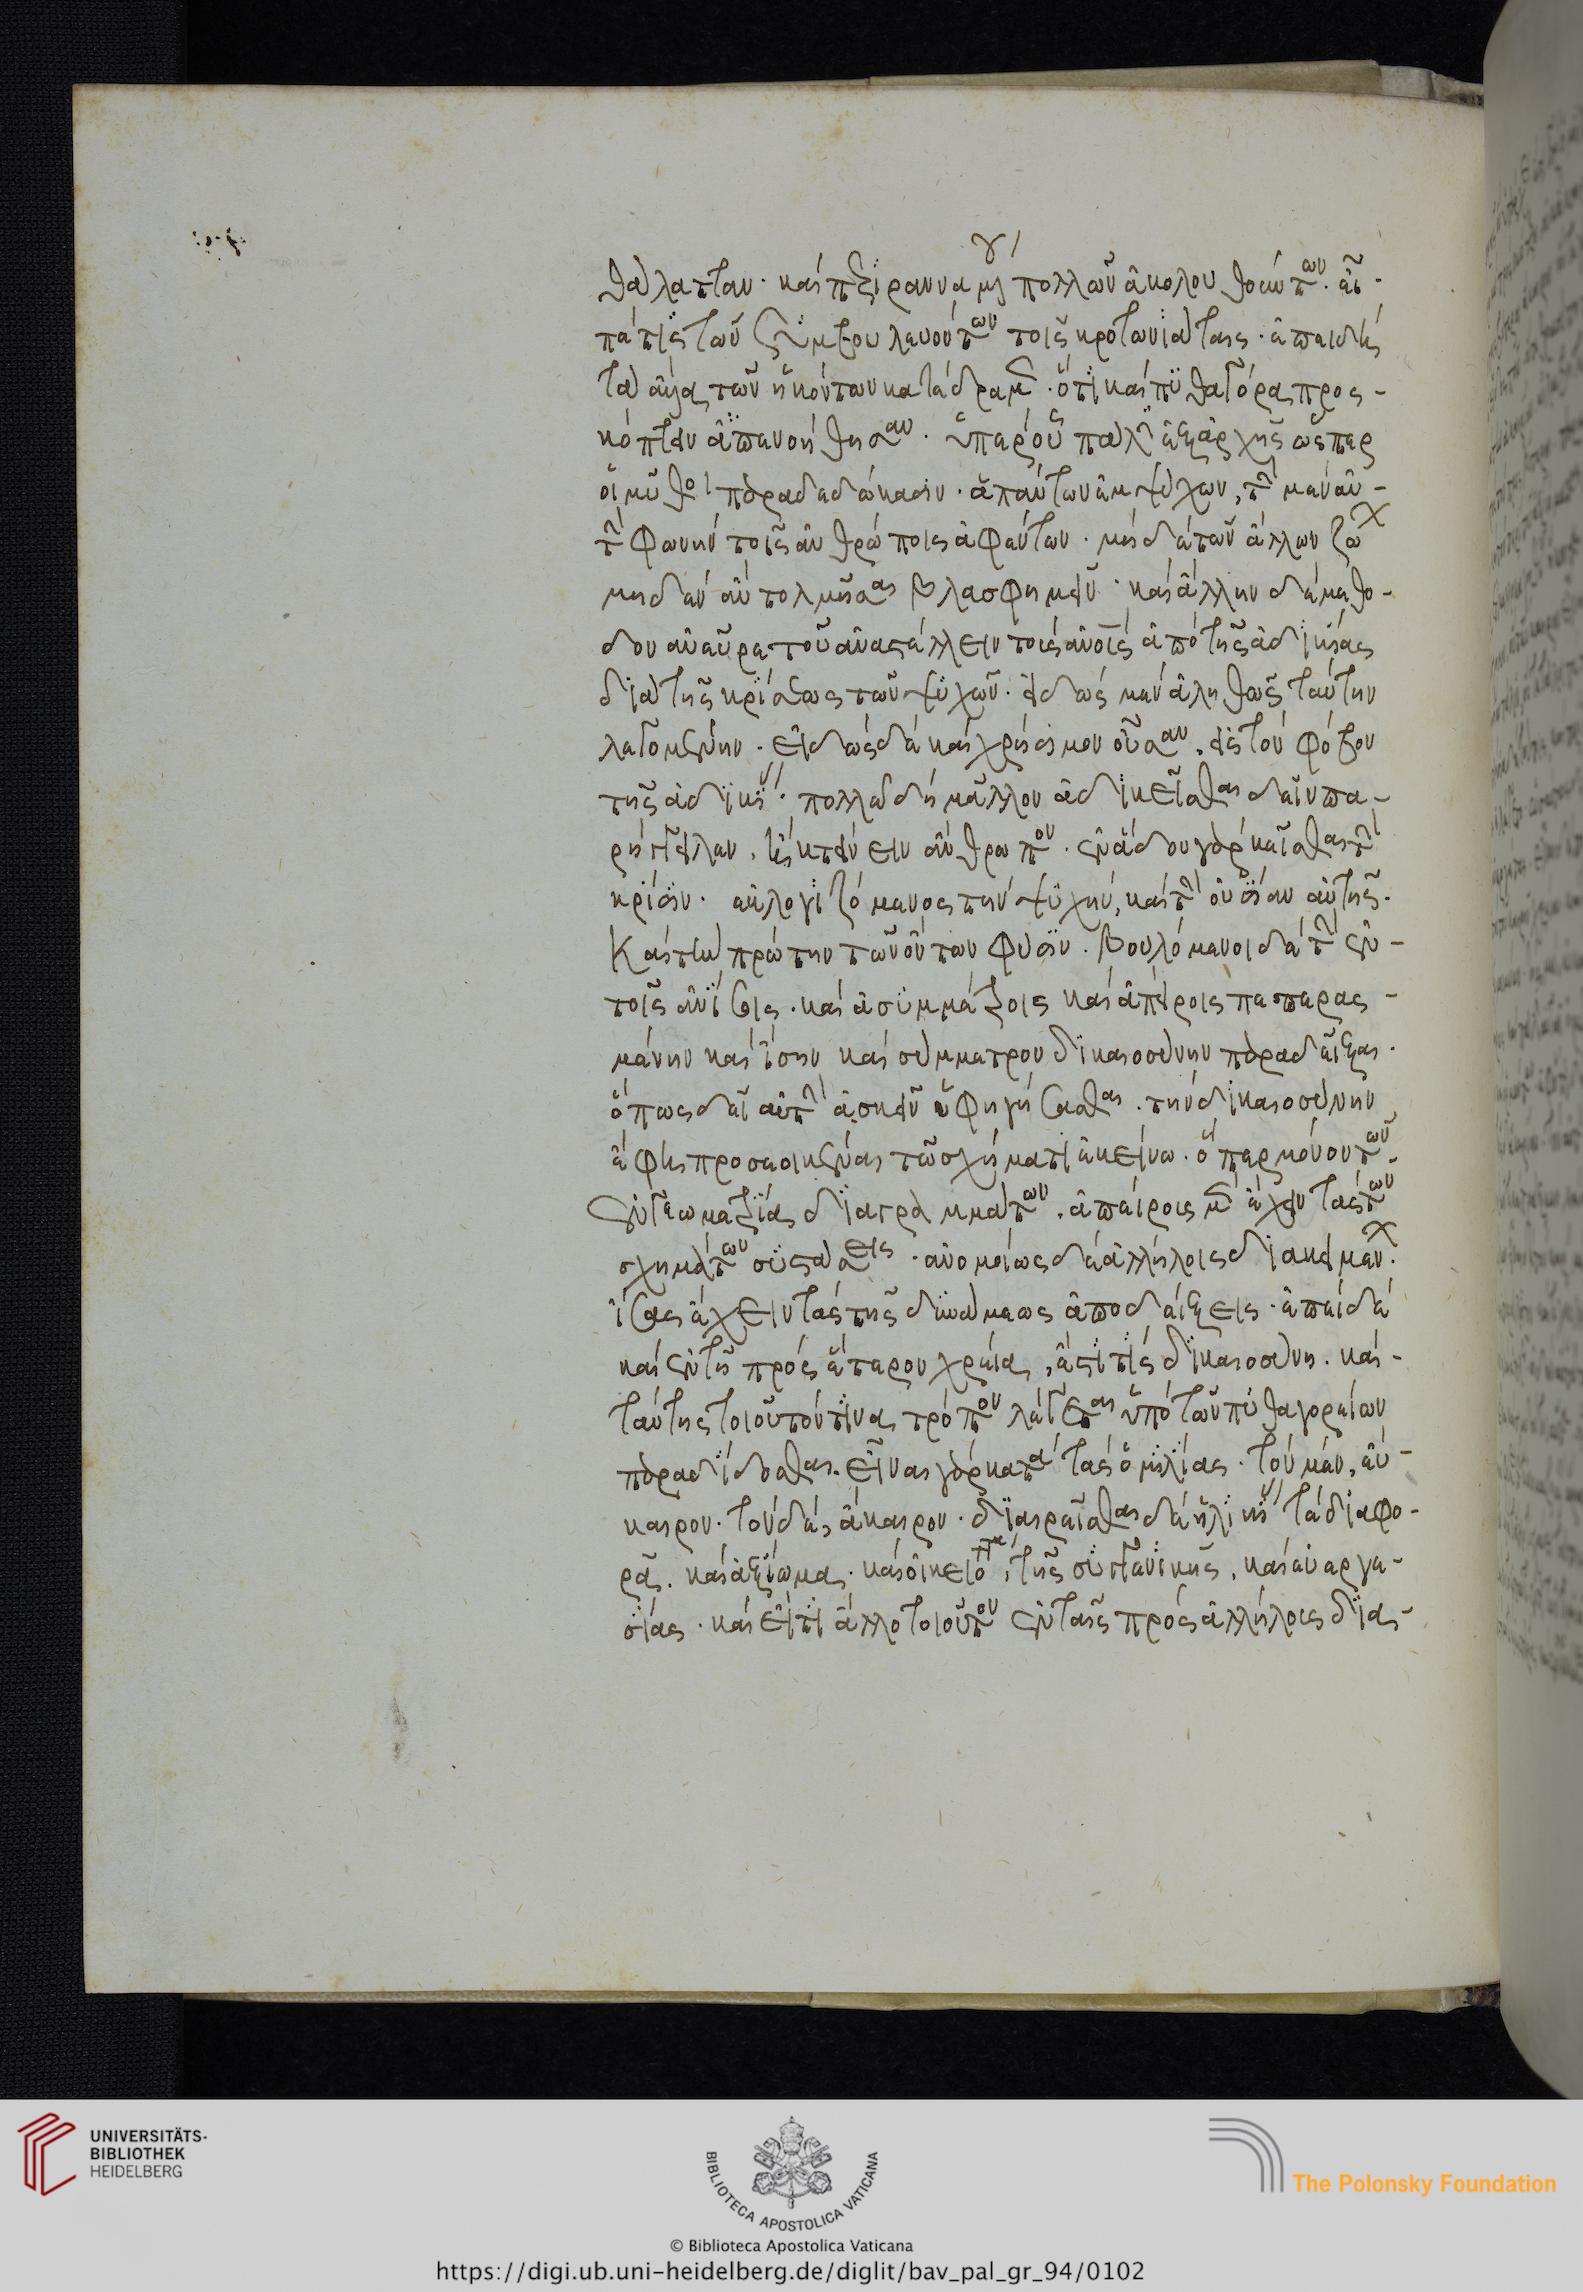 γ΄
θάλατταν· καὶ πτξίραννα γῆ πολλῶν ἀκολουθούντων. εἶ-
πέ τις τῶν συμβουλευόντων τοῖς κροτωνιάταις. ἐπειδὴ
τὰ τῶν ἡκόντων κατέδραμεν. ὅτι καὶ πυθαγόρας προσ-
κόπτειν ἐπενοήθησαν. ὑπὲρ οὗ πάλιν ἐξἀρχῆς ὥσπερ
οἱ μῦθοι παραδεδώκασιν. ἁπάντων ἐμψύχων, τὴν μὲν αὐ-
τὴν φωνὴν τοῖς ἀνθρώποις ἀφέντων. μὴ δὲ τῶν ἄλλων ζω
μηδὲν ἂν τολμῆσαι βλασφημεῖν. καὶ ἄλλην δὲ μέθο-
δον ἀνεῦρε τοῦ ἀναστέλλειν τοὺς ἀνους ἀπὸ τῆς ἀδικίας
διὰ τῆς κρίσεως τῶν ψυχῶν. εἰδὼς μὲν ἀληθῶς ταύτην
λεγομένην. εἰδὼς δὲ καὶ χρήσιμον οὖσαν, εἰς τὸν φόβον
τῆς ἀδικίας. πολλῶ δὴ μᾶλλον ἀδικεῖσθαι δεῖν πα-
ρήγγειλεν, ἢ κτείνειν ἄνθρωπον. ἐν ἅδου γὰρ κεῖσθαι τὴν
κρίσιν. ἐκλογιζόμενος τὴν ψυχὴν, καὶ τὴν οὐσίαν αὐτῆς.
Καὶ τὴν πρώτην τῶν ὄντων φύσιν. βουλόμενοι δὲ τὴν ἐν-
τοῖς ἀνίσοις. καὶ ἀσυμμέτροις καὶ ἀπείροις πεπερασ-
μένην καὶ ἴσην καὶ σύμμετρον δικαιοσύνην παραδεῖξαι.
ὅπως δεῖ αὐτὴν ἀσκεῖν ὑφηγήσασθαι. τὴν δικαιοσύνην
ἔφη προσεοικέναι τῶ σχήματι ἐκείνω. ὅπερ μόνον τῶν
ἐν γεωμετρίας διαγραμμάτων. ἀπείροις μὲν ἔχειν τὰς τῶν
σχημάτων συστάσεις. ἀνομοίως δὲ ἀλλήλοις διακειμέν.
ἴσας ἔχειν τὰς τῆς δυνάμεως ἀποδείξεις. ἐπεὶ δὲ
καὶ ἐν τῆ πρὸς ἕτερον χρείας, ἐστὶ τὶς δικαιοσύνη. καὶ-
ταύτης τοιοῦτόν τινα τρόπον λέγεται ὑπὸ τῶν πυθαγορείων
παραδίδοσθαι. εἶναι γὰρ κατὰ τὰς ὁμιλίας. τὸν μὲν, εὔ-
καιρον. τὸν δὲ, ἄκαιρον. διαιρεῖσθαι δὲ ἡλικίας τὲ διαφο-
ρᾶς. καὶ ἀξίωμας. καὶ οἰκειότητος, τῆς συγγενικῆς, καὶ εὐεργε-
σίας. καὶ εἴ τι ἄλλο τοιοῦτον ἐν ταῖς πρὸς ἀλλήλοις δια-
UNIVERSITÄTS-
BIBLIOTHEK
HEIDELBERG
BIBLIOTECA APOSTOLICA VATICANA
The Polonsky Foundation
© Biblioteca Apostolica Vaticana
https://digi.ub.uni-heidelberg.de/diglit/bav_pal_gr_94/0102